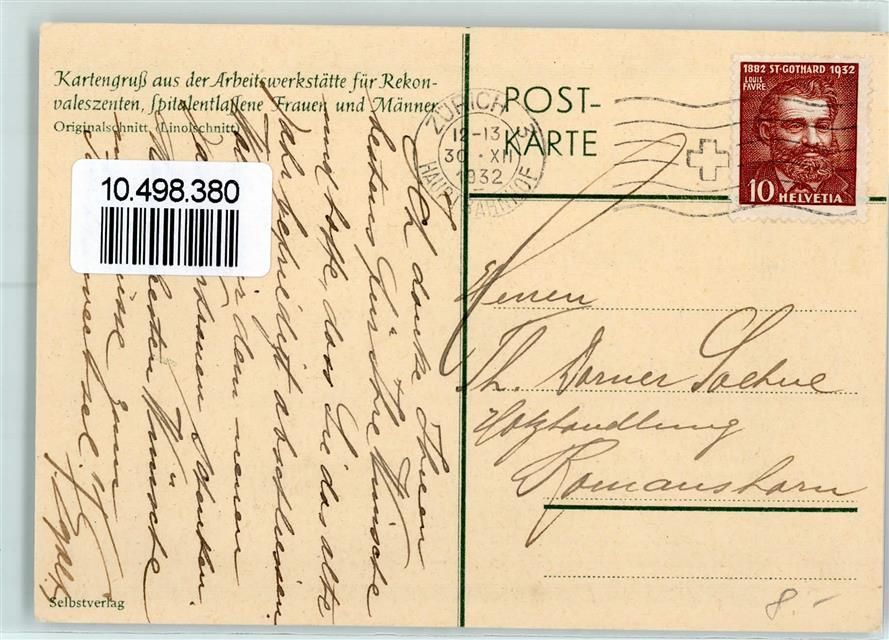 Kartengruß aus der Arbeitswerkstätte für Rekon-
valeszenten, spitalentlassene Frauen und Männer
Originalschnitt (Linolschnitt)
10.498.380
Ich danke Ihnen
bestens für Ihre Wünsche
und hoffe, dass Sie das alte
Jahr befriedigt abschliessen
dem neuen
Vertrauen schenken.
besten Wünsche
zum
Jahreswechsel!
Selbstverlag
POST-
KARTE
ZÜRICH
12-13
30. XII
1932
HAUPTBAHNHOF
1882 ST-GOTHARD 1932
LOUIS
FAVRE
10 HELVETIA
Herren
Th. Dorner Soehne
Holzhandlung
Romanshorn
8.-